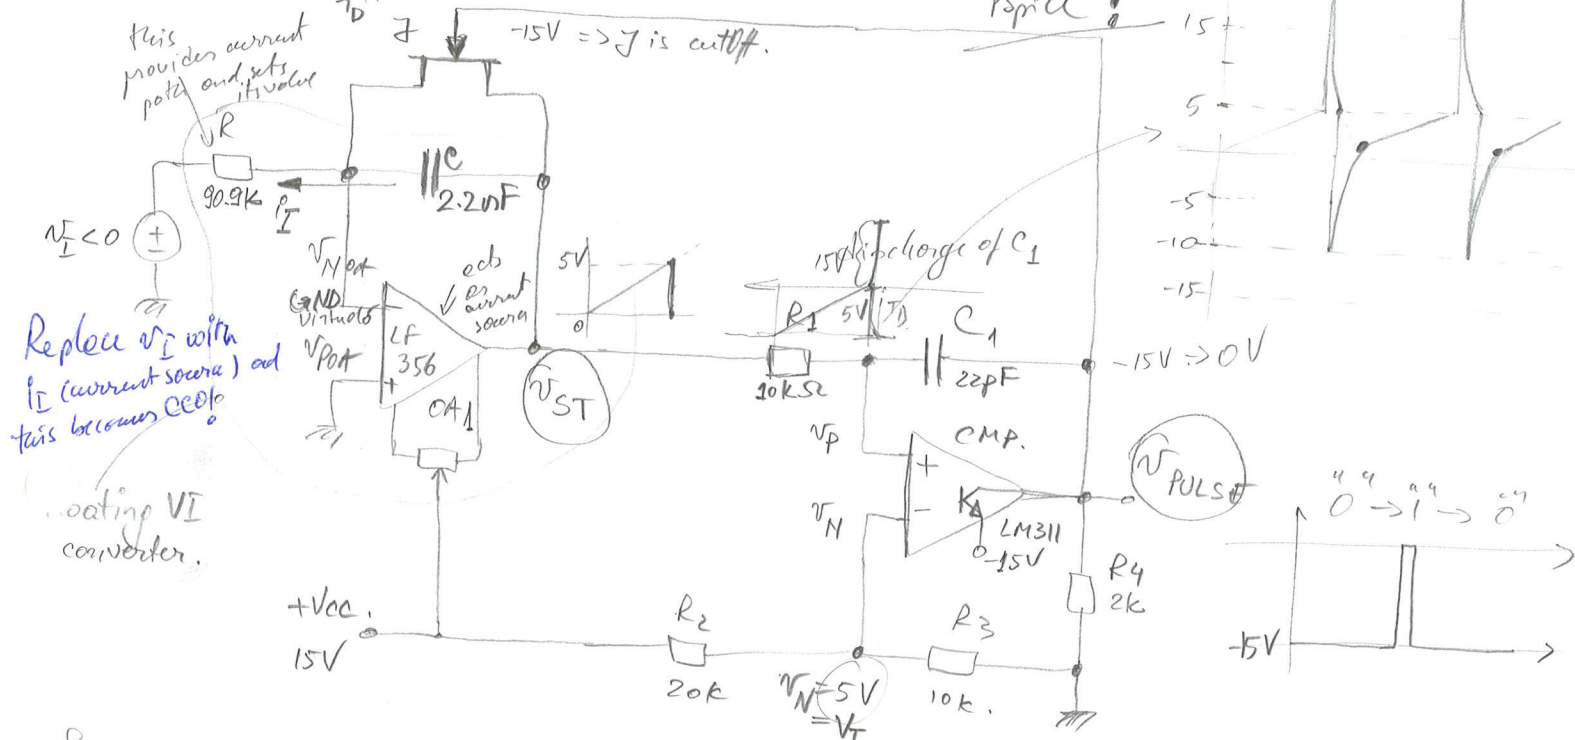 this
provides current
path and sets
its value
R
90.9k
i_I
v_I < 0
+
I_D
J
-15V => J is cutoff.
Pspice !
C
2.2nF
v_N OA
GND
virtual
v_P OA
-
+
LF
356
OA1
acts
as
current
source
Replace v_I with
i_I (current source) ad
this becomes CCO!
oating VI
converter.
5V
0
v_ST
15V
Discharge of C1
5V
R1
10kΩ
C1
22pF
-15V => 0V
v_P
v_N
CMP.
+
-
LM311
-15V
v_PULSE
R4
2k
+Vcc.
15V
R2
20k
v_N = 5V
= V_T
R3
10k.
15
5
-5
-10
-15
"0" → "1" → "0"
-15V